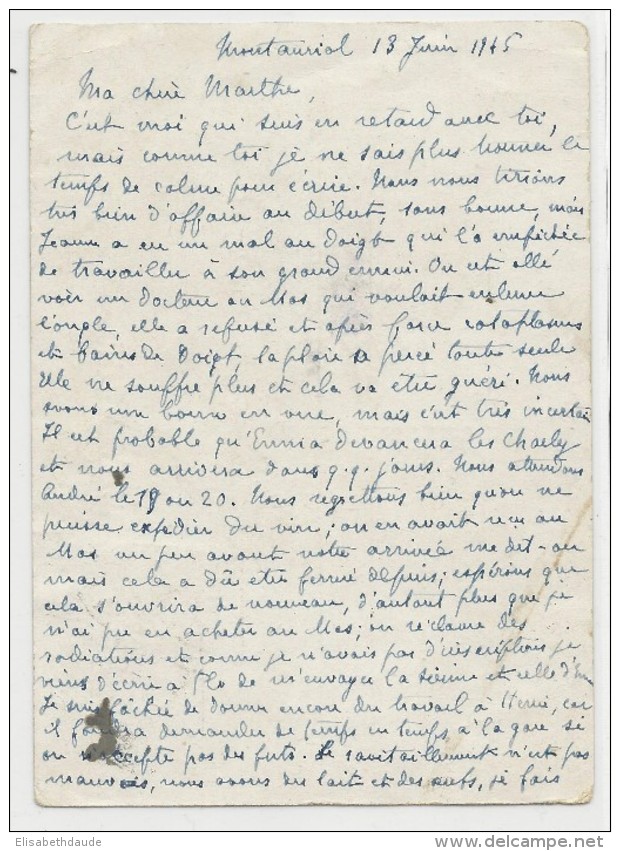 Montauriol 13 Juin 1945
Ma chère Marthe,
C'est moi qui suis en retard avec toi,
mais comme toi je ne sais plus trouver le
temps de calme pour écrire. Nous nous tirions
très bien d'affaire au début, sans bonne, mais
Jeanne a eu un mal au doigt qui l'a empêchée
de travailler à son grand ennui. On est allé
voir un docteur au Mas qui voulait enlever
l'ongle, elle a refusé et après force cataplasmes
et bains de doigt, la plaie a percé toute seule
Elle ne souffre plus et cela va être guéri. Nous
avons une bonne en vue, mais c'est très incertain
Il est probable qu'Emma devancera les Charley
et nous arrivera dans q.q. jours. Nous attendons
André le 19 ou 20. Nous regrettons bien qu'on ne
puisse expédier du vin; on en avait reçu au
Mas un peu avant notre arrivée me dit-on
mais cela a dû être fermé depuis; espérons que
cela s'ouvrira de nouveau, d'autant plus que je
n'ai pu en acheter au Mas; on réclame des
radiations et comme je n'avais pas d'inscriptions je
viens d'écrire à Flo de m'envoyer la sienne et celle
Je suis fâchée de donner encore du travail à Henri, car
il faudra demander de temps en temps, à la gare si
on n'accepte pas des futs. Le ravitaillement n'est pas
mauvais, nous avons des lait et des œufs, je fais
Elisabethdaude
www.delcampe.net